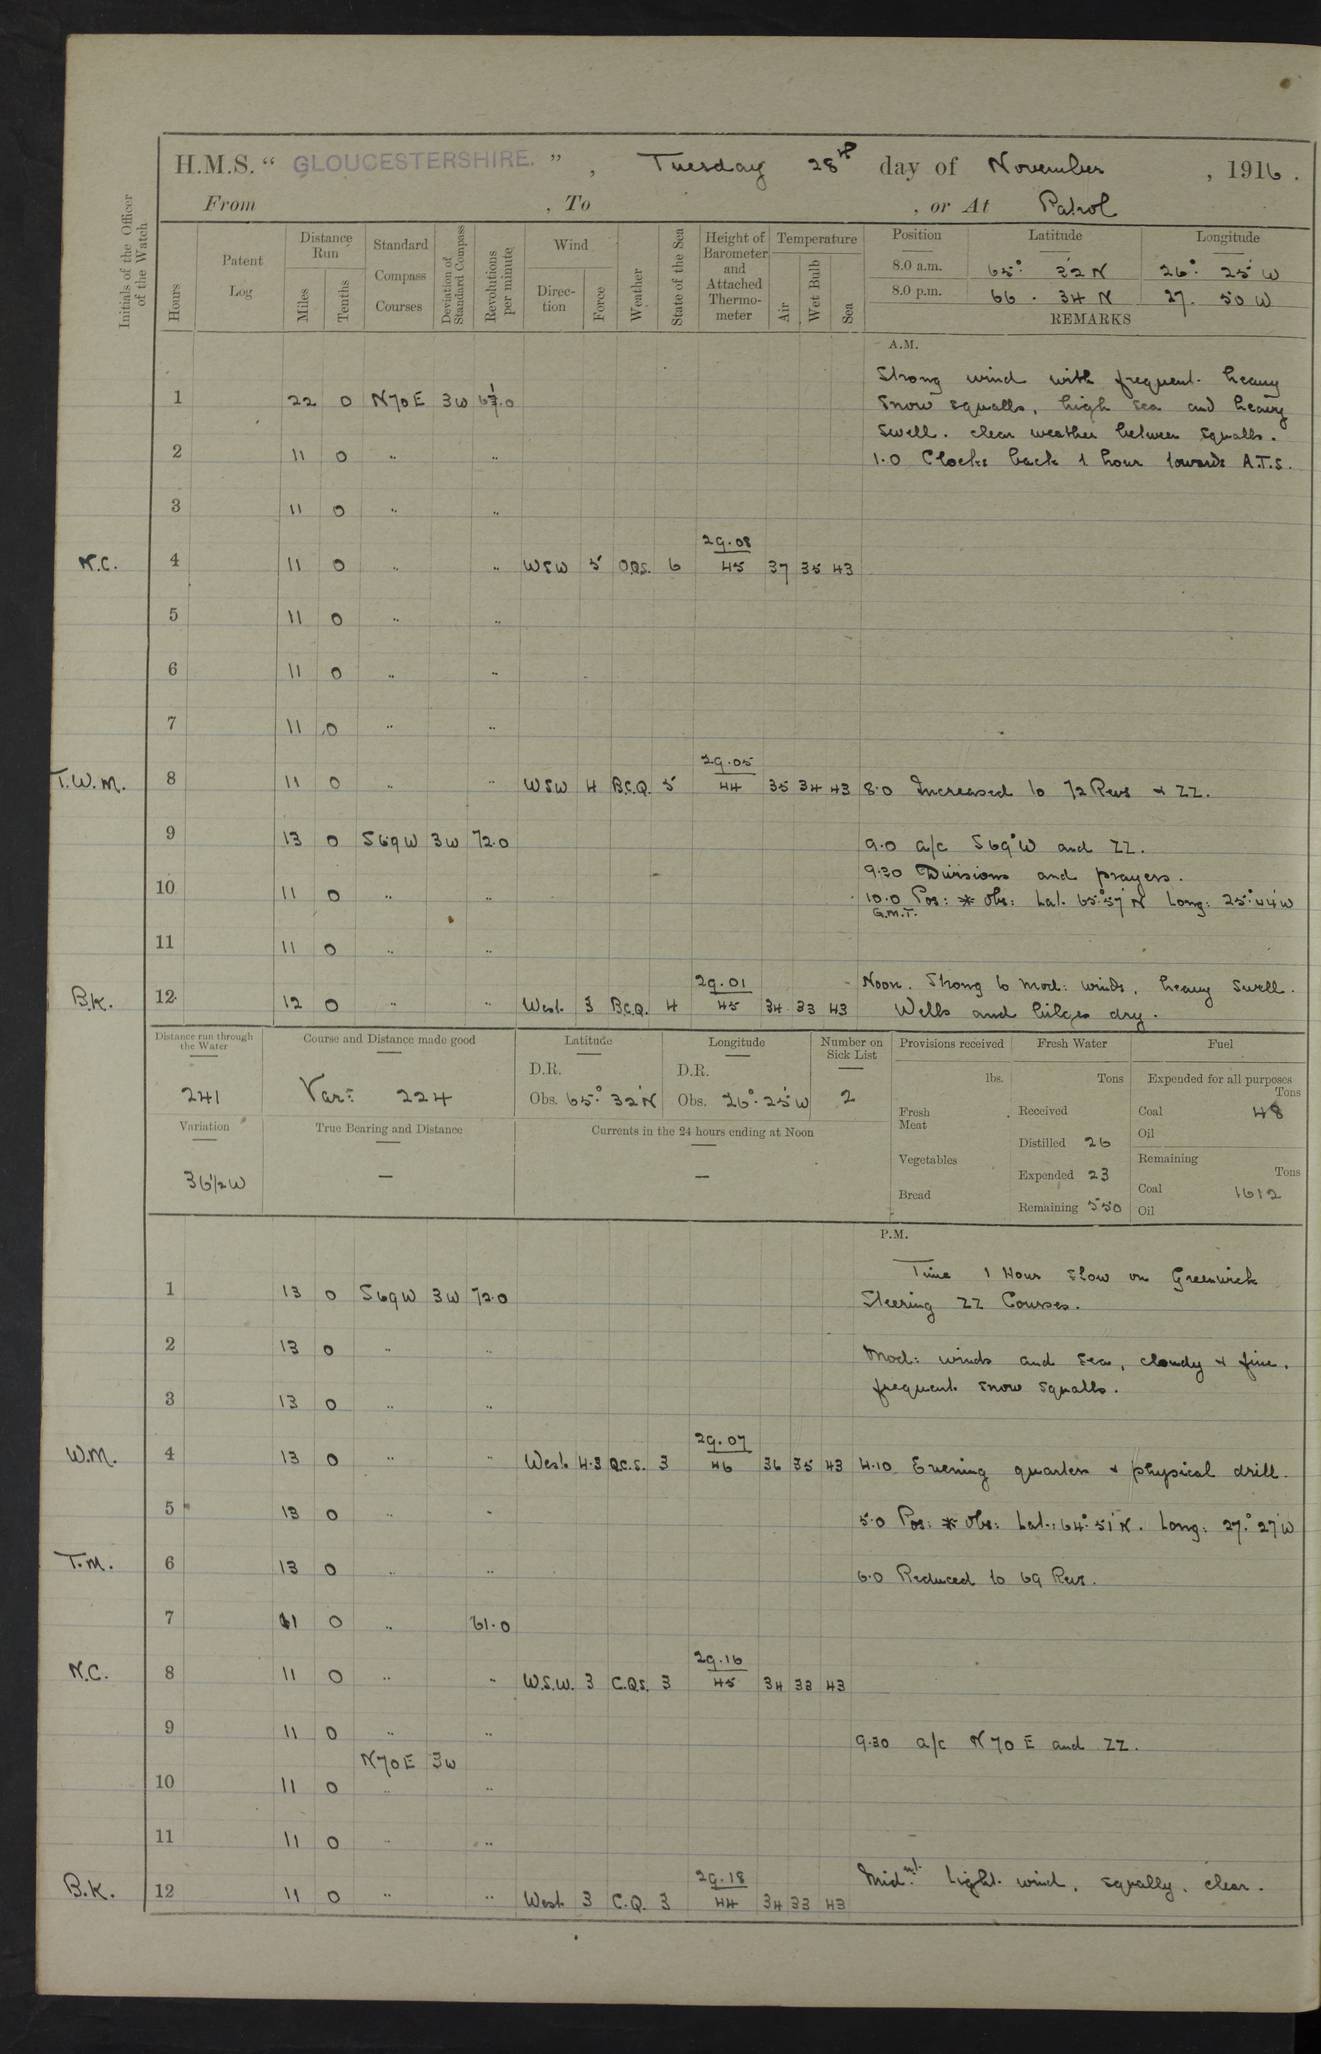 H.M.S. “ GLOUCESTERSHIRE. ” , Tuesday 28th day of November , 1916 .
From , To , or At Patrol
Initials of the Officer of the Watch
Hours
Patent Log
Distance Run
Miles Tenths
Standard Compass Courses
Deviation of Standard Compass
Revolutions per minute
Wind
Direc-tion Force
Weather
State of the Sea
Height of Barometer and Attached Thermo-meter
Temperature
Air Wet Bulb Sea
Position Latitude Longitude
8.0 a.m. 65° 32 N 26° 25' W
8.0 p.m. 66 . 34 N 27. 50 W
REMARKS
A.M.
Strong wind with frequent heavy
1 22 0 N70E 3W snow squalls, high sea and heavy
swell. clear weather between squalls.
2 11 0 .. .. 1.0 Clocks back 1 hour towards A.T.S.
3 11 0 .. ..
29.08
N.C. 4 11 0 .. .. WSW 5 O.Q.S. 6 45 37 35 43
5 11 0 .. ..
6 11 0 .. ..
7 11 0 .. ..
29.05
T.W.M. 8 11 0 .. .. WSW 4 B.C.Q. 5 44 35 34 43 8.0 Increased to 72 Revs & ZZ.
9 13 0 S69W 3W 72.0 9.0 a/c S69°W and ZZ.
9.30 Divisions and prayers.
10 11 0 .. .. 10.0 Pos: * Obs: Lat. 65°.57' N Long: 25°.44' W
G.M.T.
11 11 0 .. ..
29.01 Noon. Strong to mod: winds, heavy swell.
B.K. 12 12 0 .. .. West 3 B.C.Q. 4 45 34 33 43 Wells and bilges dry.
Distance run through the Water Course and Distance made good Latitude Longitude Number on Sick List Provisions received Fresh Water Fuel
D.R. D.R. lbs. Tons Expended for all purposes Tons
241 Var: 224 Obs. 65° 32' N Obs. 26° 25' W 2
Fresh Meat Received Coal 48
Variation True Bearing and Distance Currents in the 24 hours ending at Noon
Distilled 26 Oil
Vegetables Remaining Tons
36 1/2 W — — Expended 23
Bread Coal 1612
Remaining 550 Oil
P.M.
Time 1 Hour slow on Greenwich
1 13 0 S69W 3W 72.0 Steering ZZ Courses.
2 13 0 .. .. Mod: winds and sea, cloudy & fine,
3 13 0 .. .. frequent snow squalls.
29.07
W.M. 4 13 0 .. .. West 4.3 Q.C.S. 3 46 36 35 43 4.10 Evening quarters & physical drill.
5 13 0 .. 5.0 Pos: * Obs: Lat: 64°.51' N. Long: 27° 27' W
T.M. 6 13 0 .. .. 6.0 Reduced to 69 Revs.
7 11 0 .. 61.0
29.16
N.C. 8 11 0 .. .. W.S.W. 3 C.Q.S. 3 45 34 33 43
9 11 0 .. .. 9.30 a/c N 70 E and ZZ.
N70E 3W
10 11 0 .. ..
11 11 0 .. ..
29.18 Midnt. Light wind, squally, clear.
B.K. 12 11 0 .. .. West 3 C.Q. 3 44 34 33 43